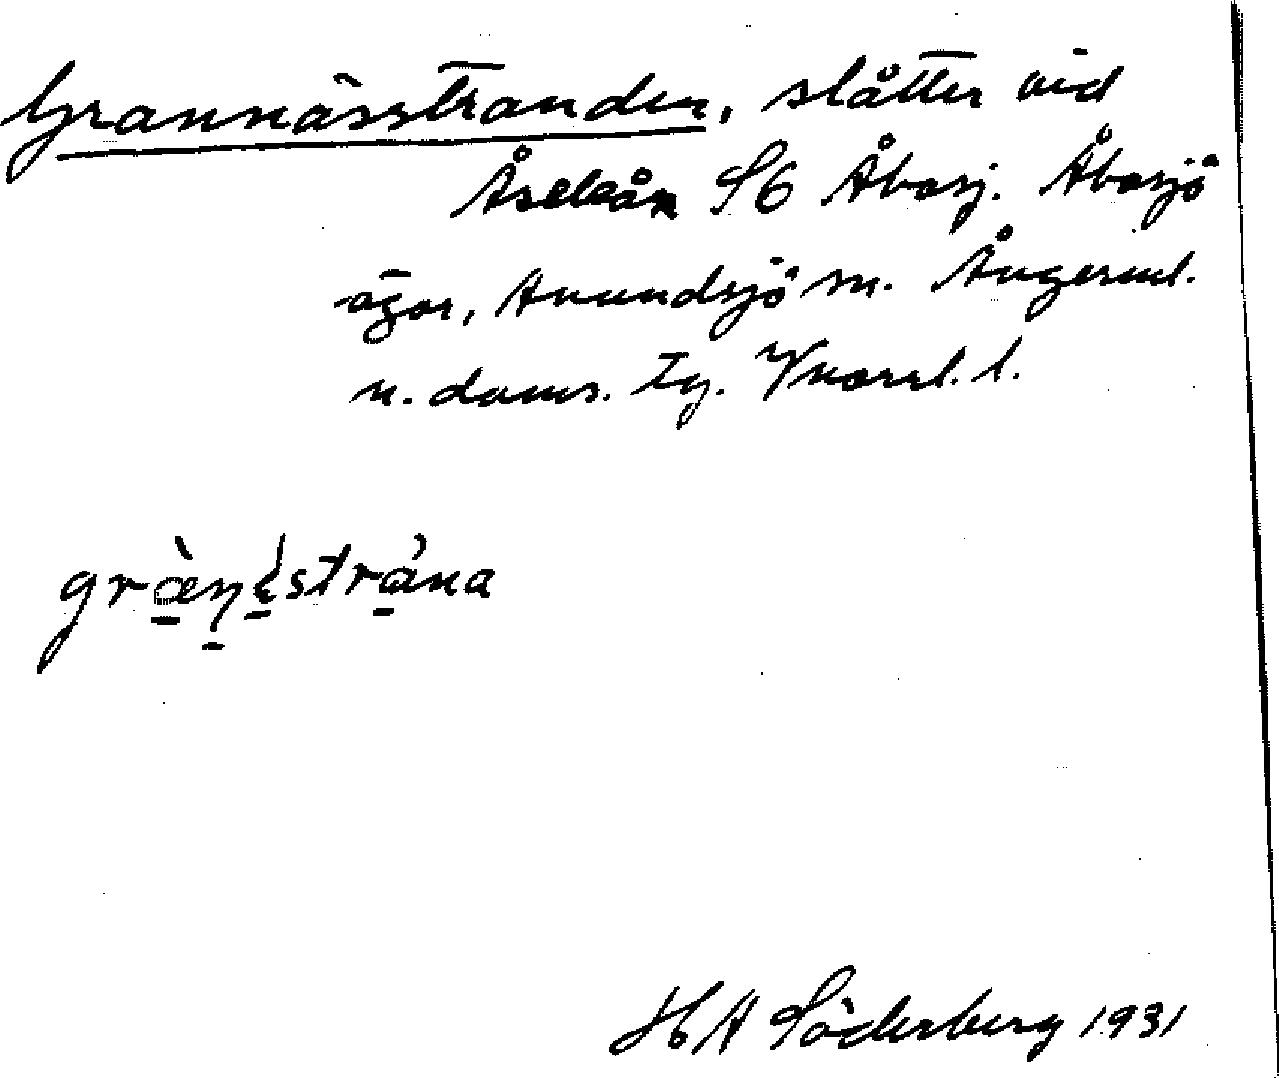 Grannässtranden, slåtter vid
Åseleån SÖ Åbosj. Åbosjö
ägor, Anundsjö sn. Ångerml.
n. doms. Tg. Vnorrl. l.
græn̥ɛstrána
H A Söderberg 1931